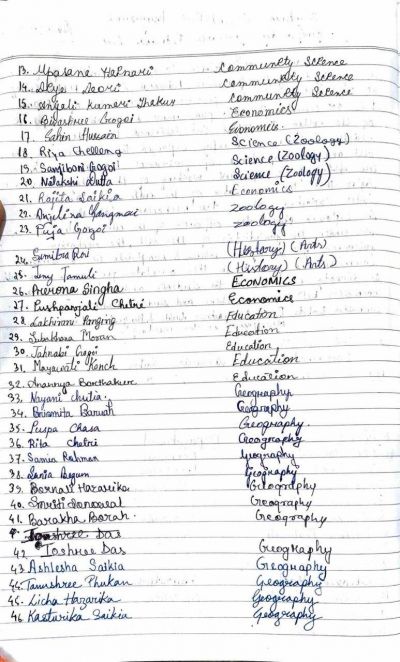 13. Upasana Hatnari Community Science
14. Deori Community Science
15. Anjali Kumari Thakur Community Science
16. Bidashree Gogoi Economics
17. Sahin Hussain Economics
18. Riya Chelleng Science (Zoology)
19. Sanjiboni Gogoi Science (Zoology)
20. Nilakshi Dutta Science (Zoology)
21. Rajita Saikia Economics
22. Anjelina Zoology
23. Puja Gogoi zoology
24. Sumitra (History) (Arts)
25. Tamuli (History) (Arts)
26. Singha ECONOMICS
27. Pushpanjali Chetri Economics
28. Lakhirani Education
29. Moran Education
30. Jahnabi Gogoi Education
31. Mayawati Education
32. Ananya Borthakur Education
33. Nayani Chutia Geography
34. Baruah Geography
35. Puspa Chasa Geography.
36. Rita Chetri Geography
37. Samia Rahman Geography
38. Sania Begum Geography
39. Bornali Hazarika Geography
40. Smriti Sonowal Geography
41. Barakha Borah. Geography
Das
42. Joshree Das Geography
43. Ashlesha Saikia Geography
44. Tanushree Phukan Geography
45. Licha Hazarika Geography
46. Kasturika Saikia Geography